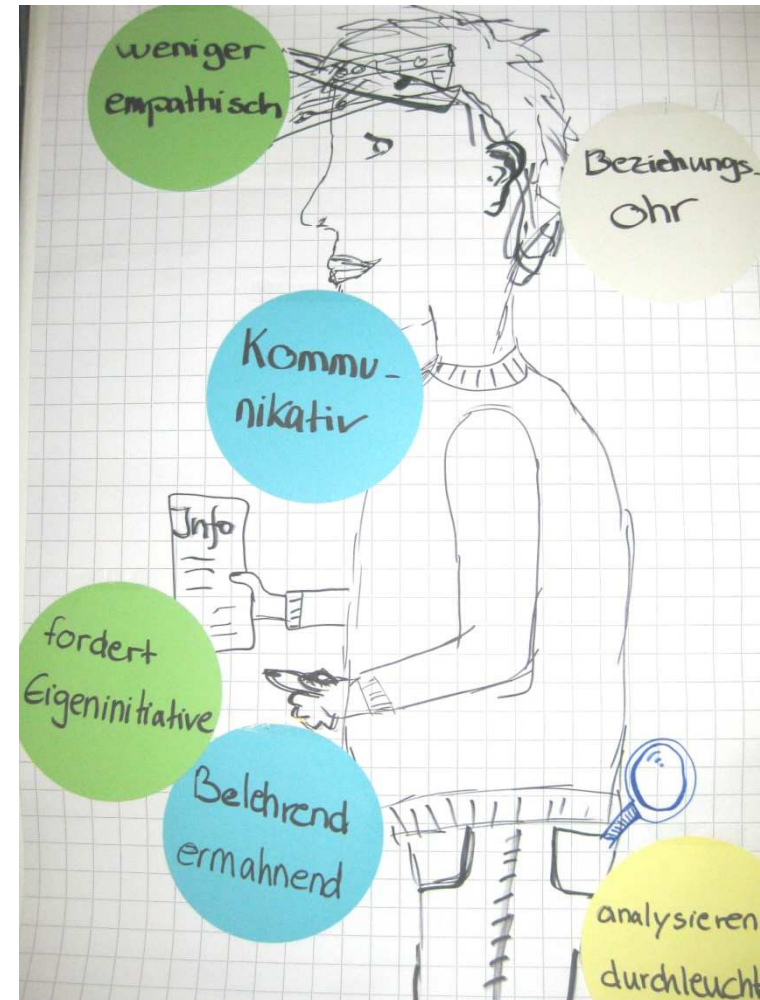 weniger
empathisch
Beziehungs-
Ohr
Kommu-
nikativ
Info
fordert
Eigeninitiative
Belehrend
ermahnend
analysieren
durchleucht